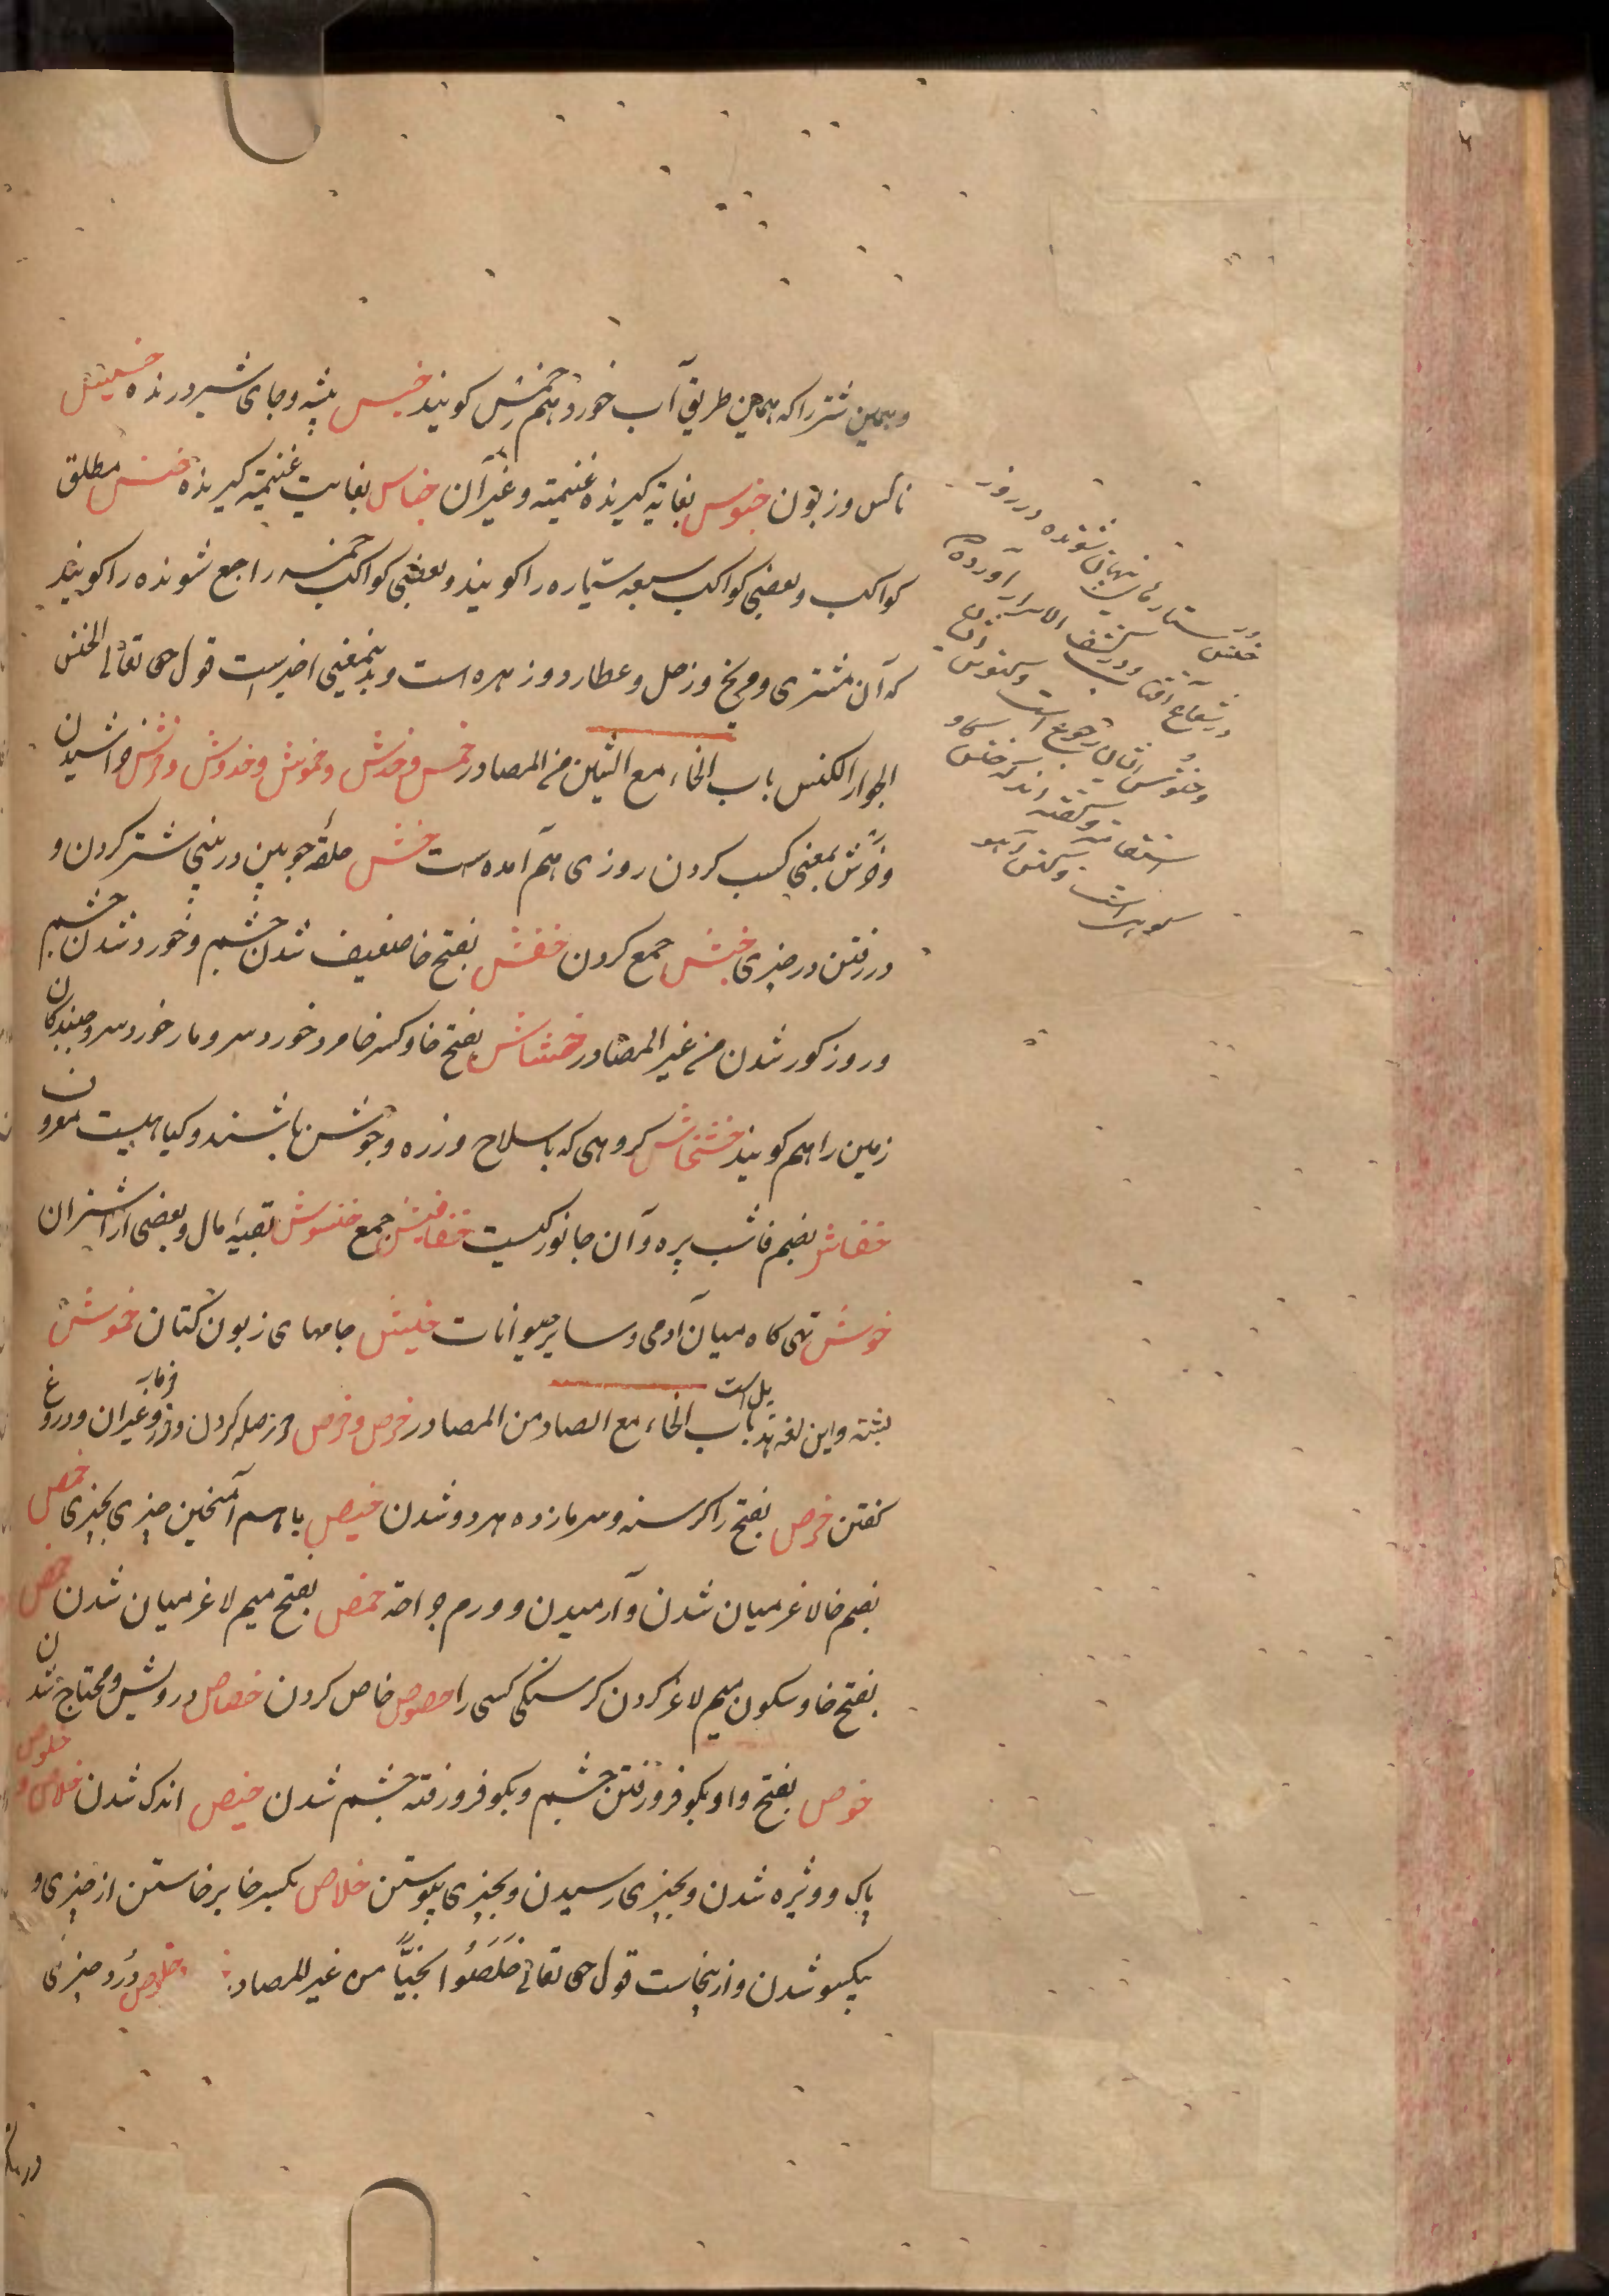 وهمین شتر را که بهمین طریق آب خورد هم خمس کویند خیس بیشه وجای شیر درنده خسیس
ناکس وزبون خبوس بغایة کیرنده غنیمته وغیر آن خباس بغایت غنیمته کیرنده خنس مطلق
کواکب وبعضی کواکب سبعه ستیاره را کویند وبعضی کواکب خمسه راجع شونده را کویند
که آن مشتری ومریخ وزحل وعطارد وزهره است وبدینمعنی اخیرست قول حق تعالی الخنس
الجوار الکنس باب الخاء مع الشین من المصادر خمش وخدش وخموش وخدوش وخرش خراشیدن
وخرش بمعنی کسب کردن روزی هم آمده است خش حلقه چوبین در بینی شتر کردن و
در رفتن در چیزی خبش جمع کردن خفش بفتح خا ضعیف شدن چشم وخورد شدن چشم
وروز کور شدن من غیر المصادر خشاش بفتح خا وکسر خا مرد خورد سر ومار خورد سر وجنبندکان
زمین را هم کویند خشخاش کروهی که با سلاح وزره وجوشن باشند وکیاهیست معروف
خفاش بضم خا شب پره وآن جانورکیست خفافیش جمع خنشوش بقیه مال وبعضی از اشتران
خوش تهی کاه میان آدمی وسایر حیوانات خیش جامهای زبون کتان خموش
پشه واین لغة هذیل است باب الخاء مع الصاد من المصادر خرص وخرص حرز کردن خرما بر وغیر آن ودروغ
کفتن خرص بفتح را کرسنه وسرمازده هر دو شدن خبص با هم آمیختن چیزی بچیزی خمص
بضم خا لاغر میان شدن وآرمیدن وورم جراحة خمص بفتح میم لاغر میان شدن خمص
بفتح خا وسکون میم لاغر کردن کرسنکی کسی را خصوص خاص کردن خصاص درویش ومحتاج شدن
خوص بفتح واو بکو فرو رفتن چشم وبکو فرو رفته چشم شدن خیص اندک شدن خلاص و خلوص
پاک وویژه شدن وبچیزی رسیدن وبچیزی پیوستن خلاص بکسر خا برخاستن از چیزی و
یکسو شدن وازینجاست قول حق تعالی خَلَصُوا نَجِیًّا من غیر المصادر خلوص درد چیزی
خنس ستارهای پنهان شونده در روز
در شعاع آفتاب ودر کشف الاسرار آورده
وخنوس ایشان رجوع است وکنوس
استقامة وکفته اند که خنس کاو
کوهی است وکنس آهو